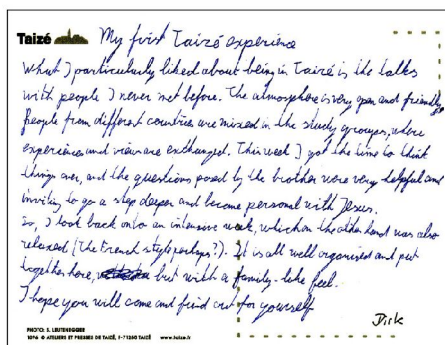 Taizé My first Taizé experience
What I particularly liked about being in Taizé is the talks
with people I never met before. The atmosphere is very open and friendly.
People from different countries are mixed in the study groups, where
experiences and views are exchanged. This week I got the time to think
things over, and the questions posed by the brother were very helpful and
inviting to go a step deeper and become personal with Jesus.
So, I look back onto an intensive week, which on the other hand was also
relaxed (the French style perhaps?). It is all well organised and put
together here, but with a family-like feel.
I hope you will come and find out for yourself
Dirk
PHOTO: S. LEUTENEGGER
1096 © ATELIERS ET PRESSES DE TAIZÉ, F-71250 TAIZÉ www.taize.fr